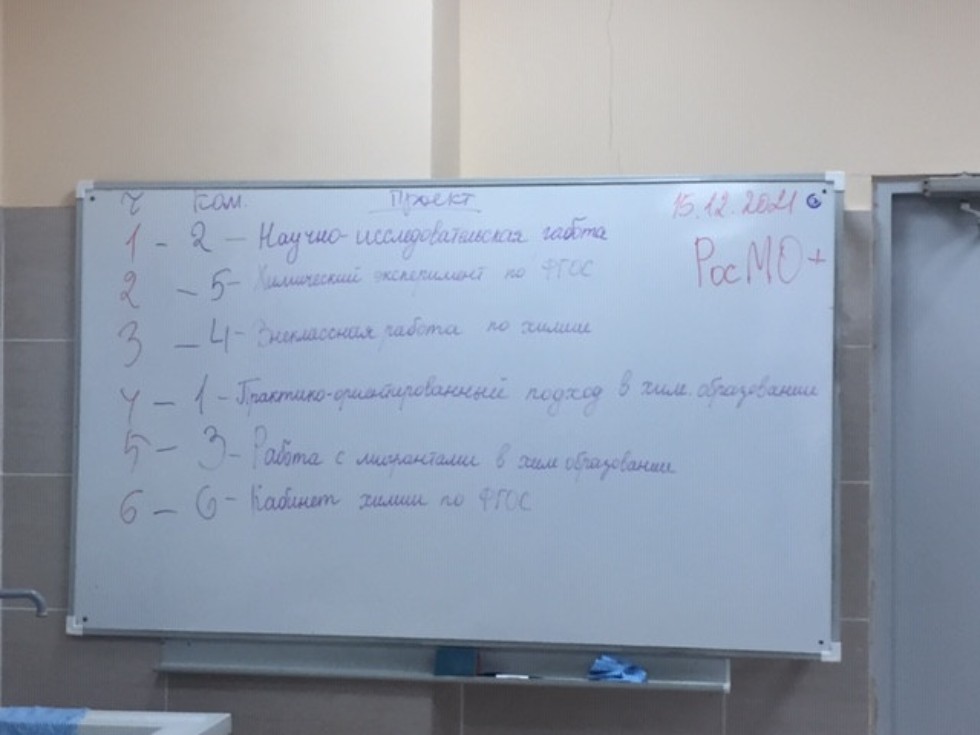 Ч Ком. Проект 15.12.2021
1 - 2 - Научно-исследовательская работа
РосМО+
2 - 5 - Химический эксперимент по ФГОС
3 - 4 - Внеклассная работа по химии
4 - 1 - Практико-ориентированный подход в хим. образовании
5 - 3 - Работа с мигрантами в хим образовании
6 - 6 - Кабинет химии по ФГОС